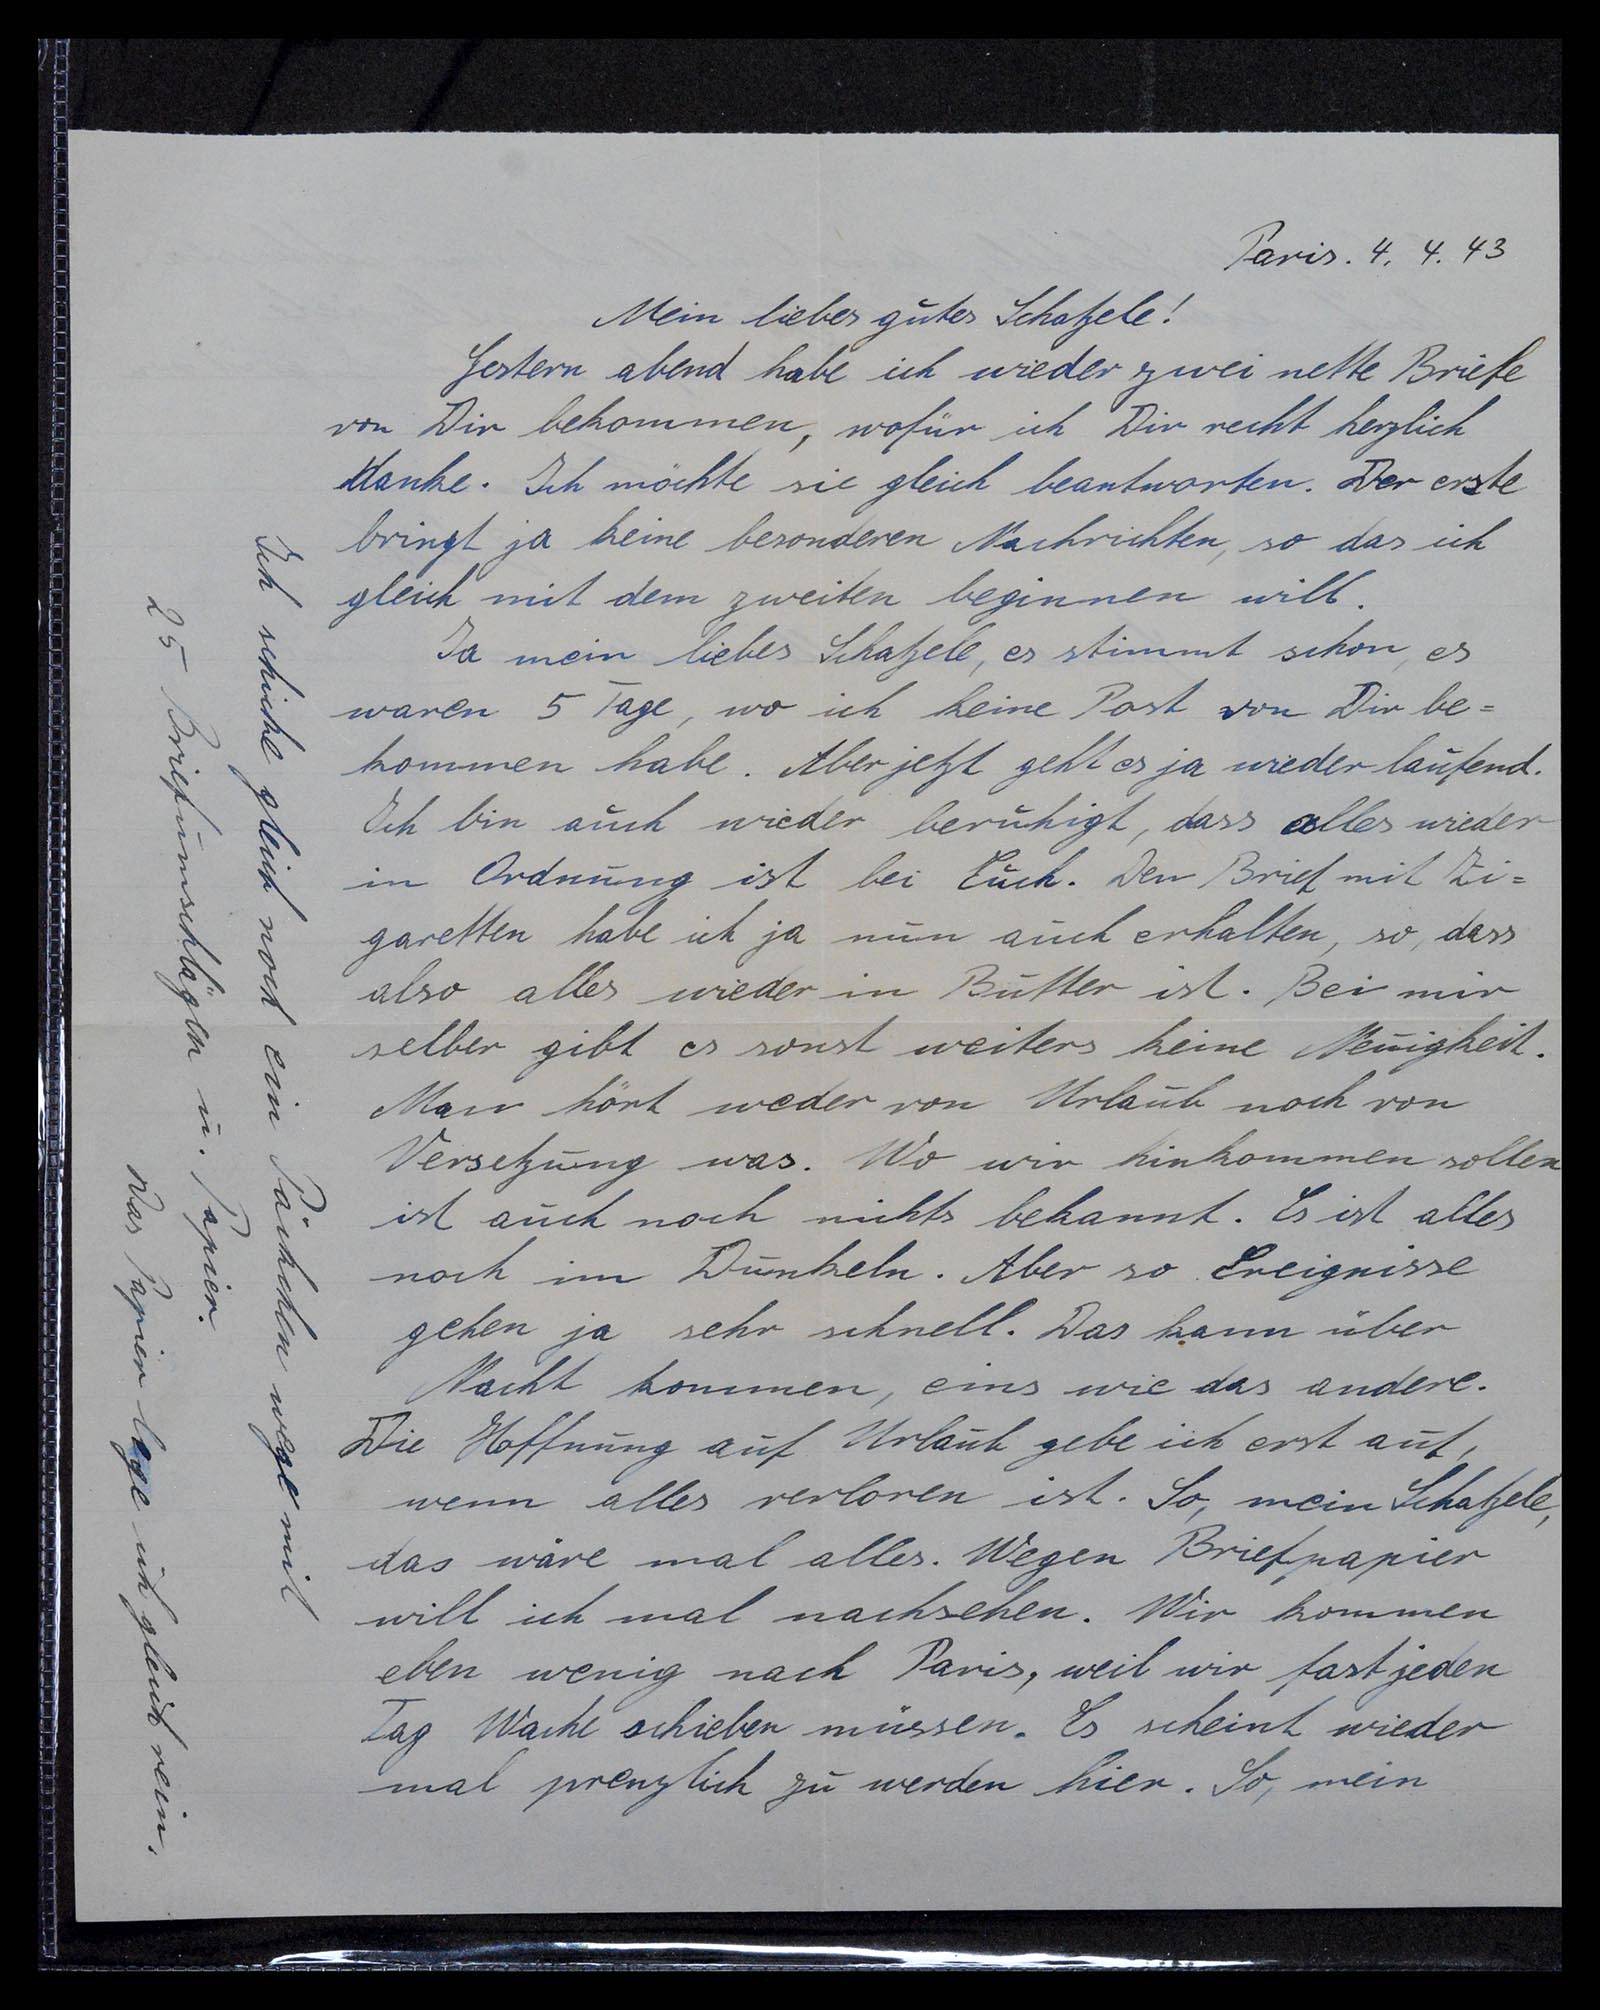 Paris. 4. 4. 43
Mein liebes gutes Schatzele!
Gestern abend habe ich wieder zwei nette Briefe
von Dir bekommen, wofür ich Dir recht herzlich
danke. Ich möchte sie gleich beantworten. Der erste
bringt ja keine besonderen Nachrichten, so das ich
gleich mit dem zweiten beginnen will.
Ja mein liebes Schatzele, es stimmt schon, es
waren 5 Tage, wo ich keine Post von Dir be=
kommen habe. Aber jetzt geht es ja wieder laufend.
Ich bin auch wieder beruhigt, dass alles wieder
in Ordnung ist bei Euch. Den Brief mit Zi=
garetten habe ich ja nun auch erhalten, so, dass
also alles wieder in Butter ist. Bei mir
selber gibt es sonst weiters keine Neuigkeit.
Man hört weder von Urlaub noch von
Versetzung was. Wo wir hinkommen sollen
ist auch noch nichts bekannt. Es ist alles
noch im Dunkeln. Aber so Ereignisse
gehen ja sehr schnell. Das kann über
Nacht kommen, eins wie das andere.
Die Hoffnung auf Urlaub gebe ich erst auf,
wenn alles verloren ist. So, mein Schatzele,
das wäre mal alles. Wegen Briefpapier
will ich mal nachsehen. Wir kommen
eben wenig nach Paris, weil wir fast jeden
Tag Wache schieben müssen. Es scheint wieder
mal prenzlich zu werden hier. So, mein
Ich schicke gleich noch ein Päckchen wege mit
25 Briefumschlägen u. Papier.
Das Papier lege ich gleich rein.